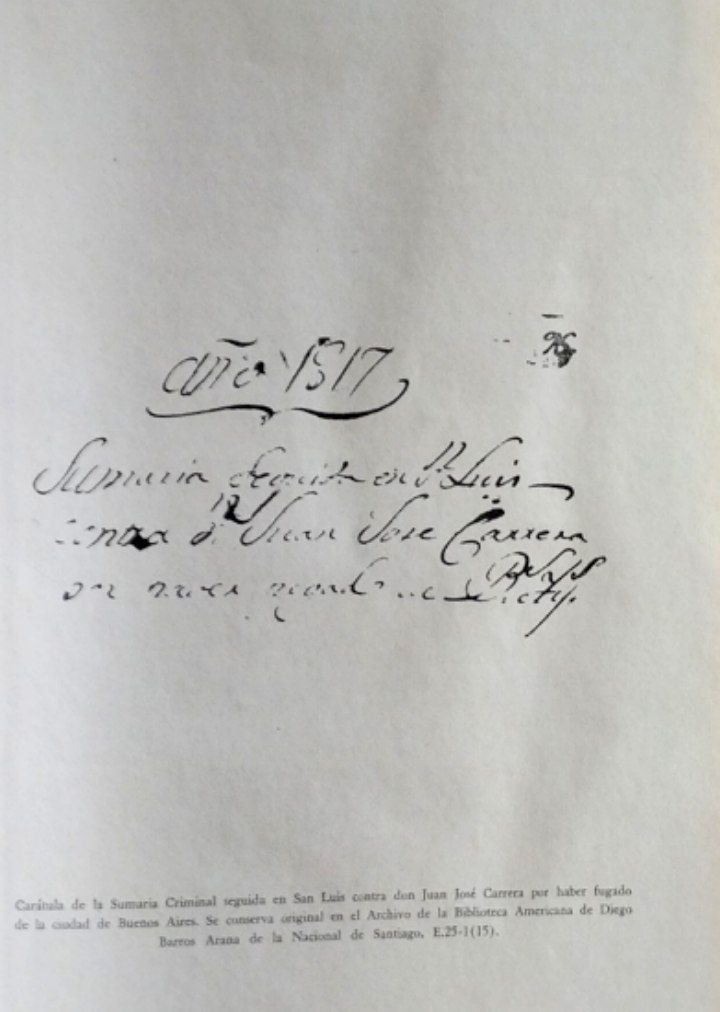 año 1817
Sumaria seguida en Sn. Luis
contra Dn. Juan Jose Carrera
por haver
Carátula de la Sumaria Criminal seguida en San Luis contra don Juan José Carrera por haber fugado
de la ciudad de Buenos Aires. Se conserva original en el Archivo de la Biblioteca Americana de Diego
Barros Arana de la Nacional de Santiago, E.25-1(15).